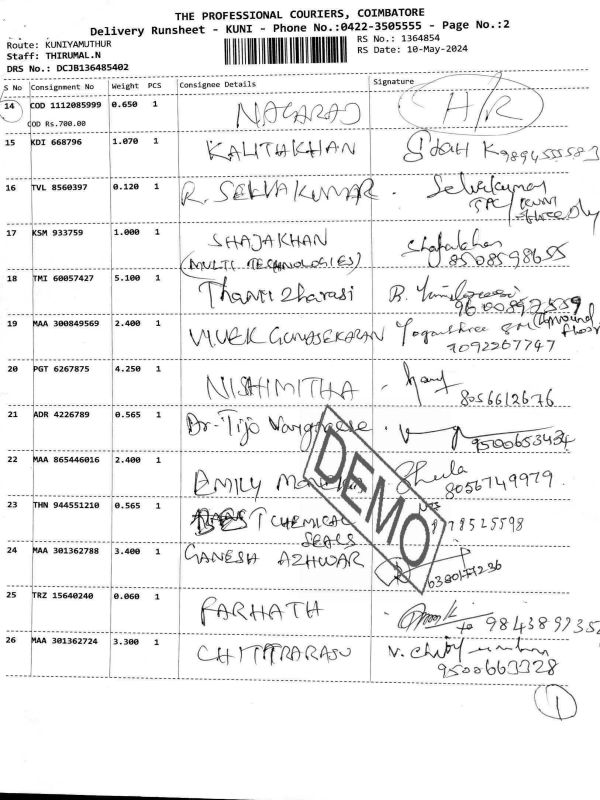 THE PROFESSIONAL COURIERS, COIMBATORE
Delivery Runsheet - KUNI - Phone No.:0422-3505555 - Page No.:2
Route: KUNIYAMUTHUR
Staff: THIRUMAL.N
DRS No.: DCJB136485402
RS No.: 1364854
RS Date: 10-May-2024
S No Consignment No Weight PCS Consignee Details Signature
14 COD 1112085999 0.650 1 NAGARAJ H/R
COD Rs.700.00
15 KDI 668796 1.070 1 KALITHAKHAN K 9894555583
16 TVL 8560397 0.120 1 R. SELVAKUMAR Selvakumar
17 KSM 933759 1.000 1 SHAJAKHAN Shajakhan
(MULTI TECHNOLOGIES) 8508598655
18 TMI 60057427 5.100 1 B.
9600892559
19 MAA 300849569 2.400 1 VIVEK GUNASEKARAN Yogashree
7092267747
20 PGT 6267875 4.250 1 NISHMITHA
8056612676
21 ADR 4226789 0.565 1 Dr. Tijo Varghese
9500653434
22 MAA 865446016 2.400 1 EMILY Sheela
8056749979
23 THN 944551210 0.565 1 CHEMICAL
SEALS
24 MAA 301362788 3.400 1 GANESH AZHWAR
25 TRZ 15640240 0.060 1 FARHATH
26 MAA 301362724 3.300 1 CHITTRARASU V.
9500663328
DEMO
1